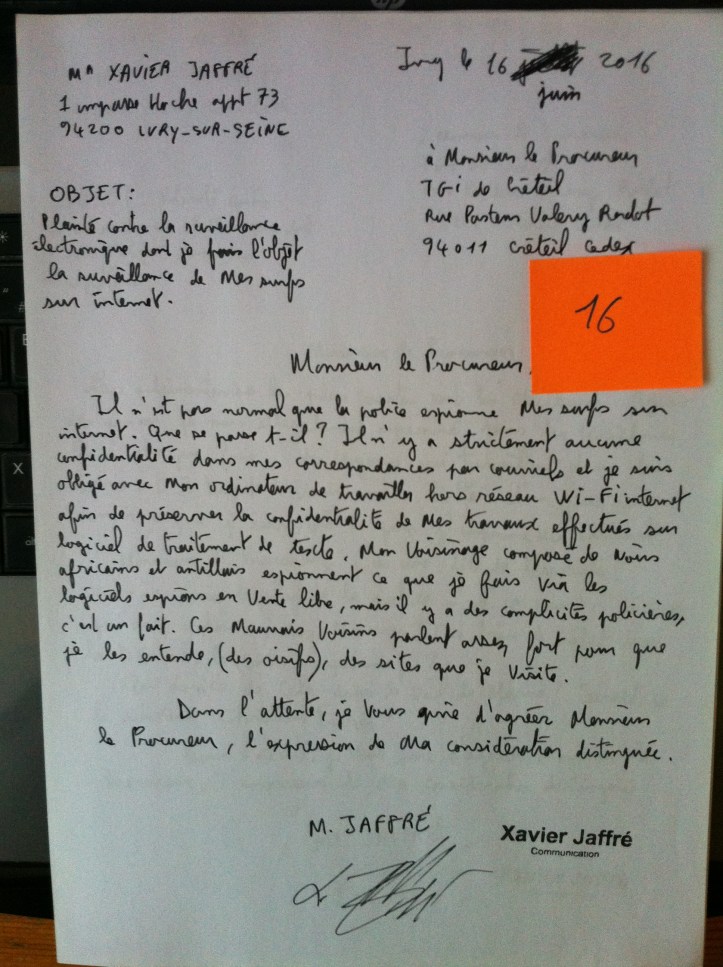 Mr XAVIER JAFFRÉ
1 impasse Hoche appt 73
94200 IVRY-SUR-SEINE
Ivry le 16 2016
juin
à Monsieur le Procureur
TGi de Créteil
Rue Pasteur Valery Radot
94011 Créteil Cedex
OBJET:
Plainte contre la surveillance
électronique dont je fais l'objet
la surveillance de Mes surfs
sur internet.
16
Monsieur le Procureur,
Il n'est pas normal que la police espionne Mes surfs sur
internet. Que se passe t-il? Il n'y a strictement aucune
confidentialité dans mes correspondances par courriels et je suis
obligé avec Mon ordinateur de travailler hors réseau Wi-Fi internet
afin de préserver la confidentialité de Mes travaux effectués sur
logiciel de traitement de texte. Mon Voisinage composé de Noirs
africains et antillais espionnent ce que je fais via les
logiciels espions en Vente libre, mais il y a des complicités policières,
c'est un fait. Ces Mauvais Voisins parlent assez fort pour que
je les entende, (des oisifs), des sites que je Visite.
Dans l'attente, je Vous prie d'agréer Monsieur
le Procureur, l'expression de Ma considération distinguée.
M. JAFFRÉ
Xavier Jaffré
Communication